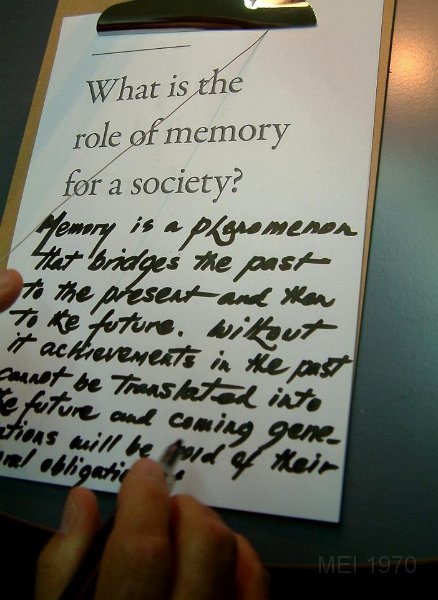 What is the
role of memory
for a society?
Memory is a phenomenon
that bridges the past
to the present and then
to the future. without
it achievements in the past
cannot be translated into
the future and coming gene-
ations will be void of their
oral obligatio
MEI 1970